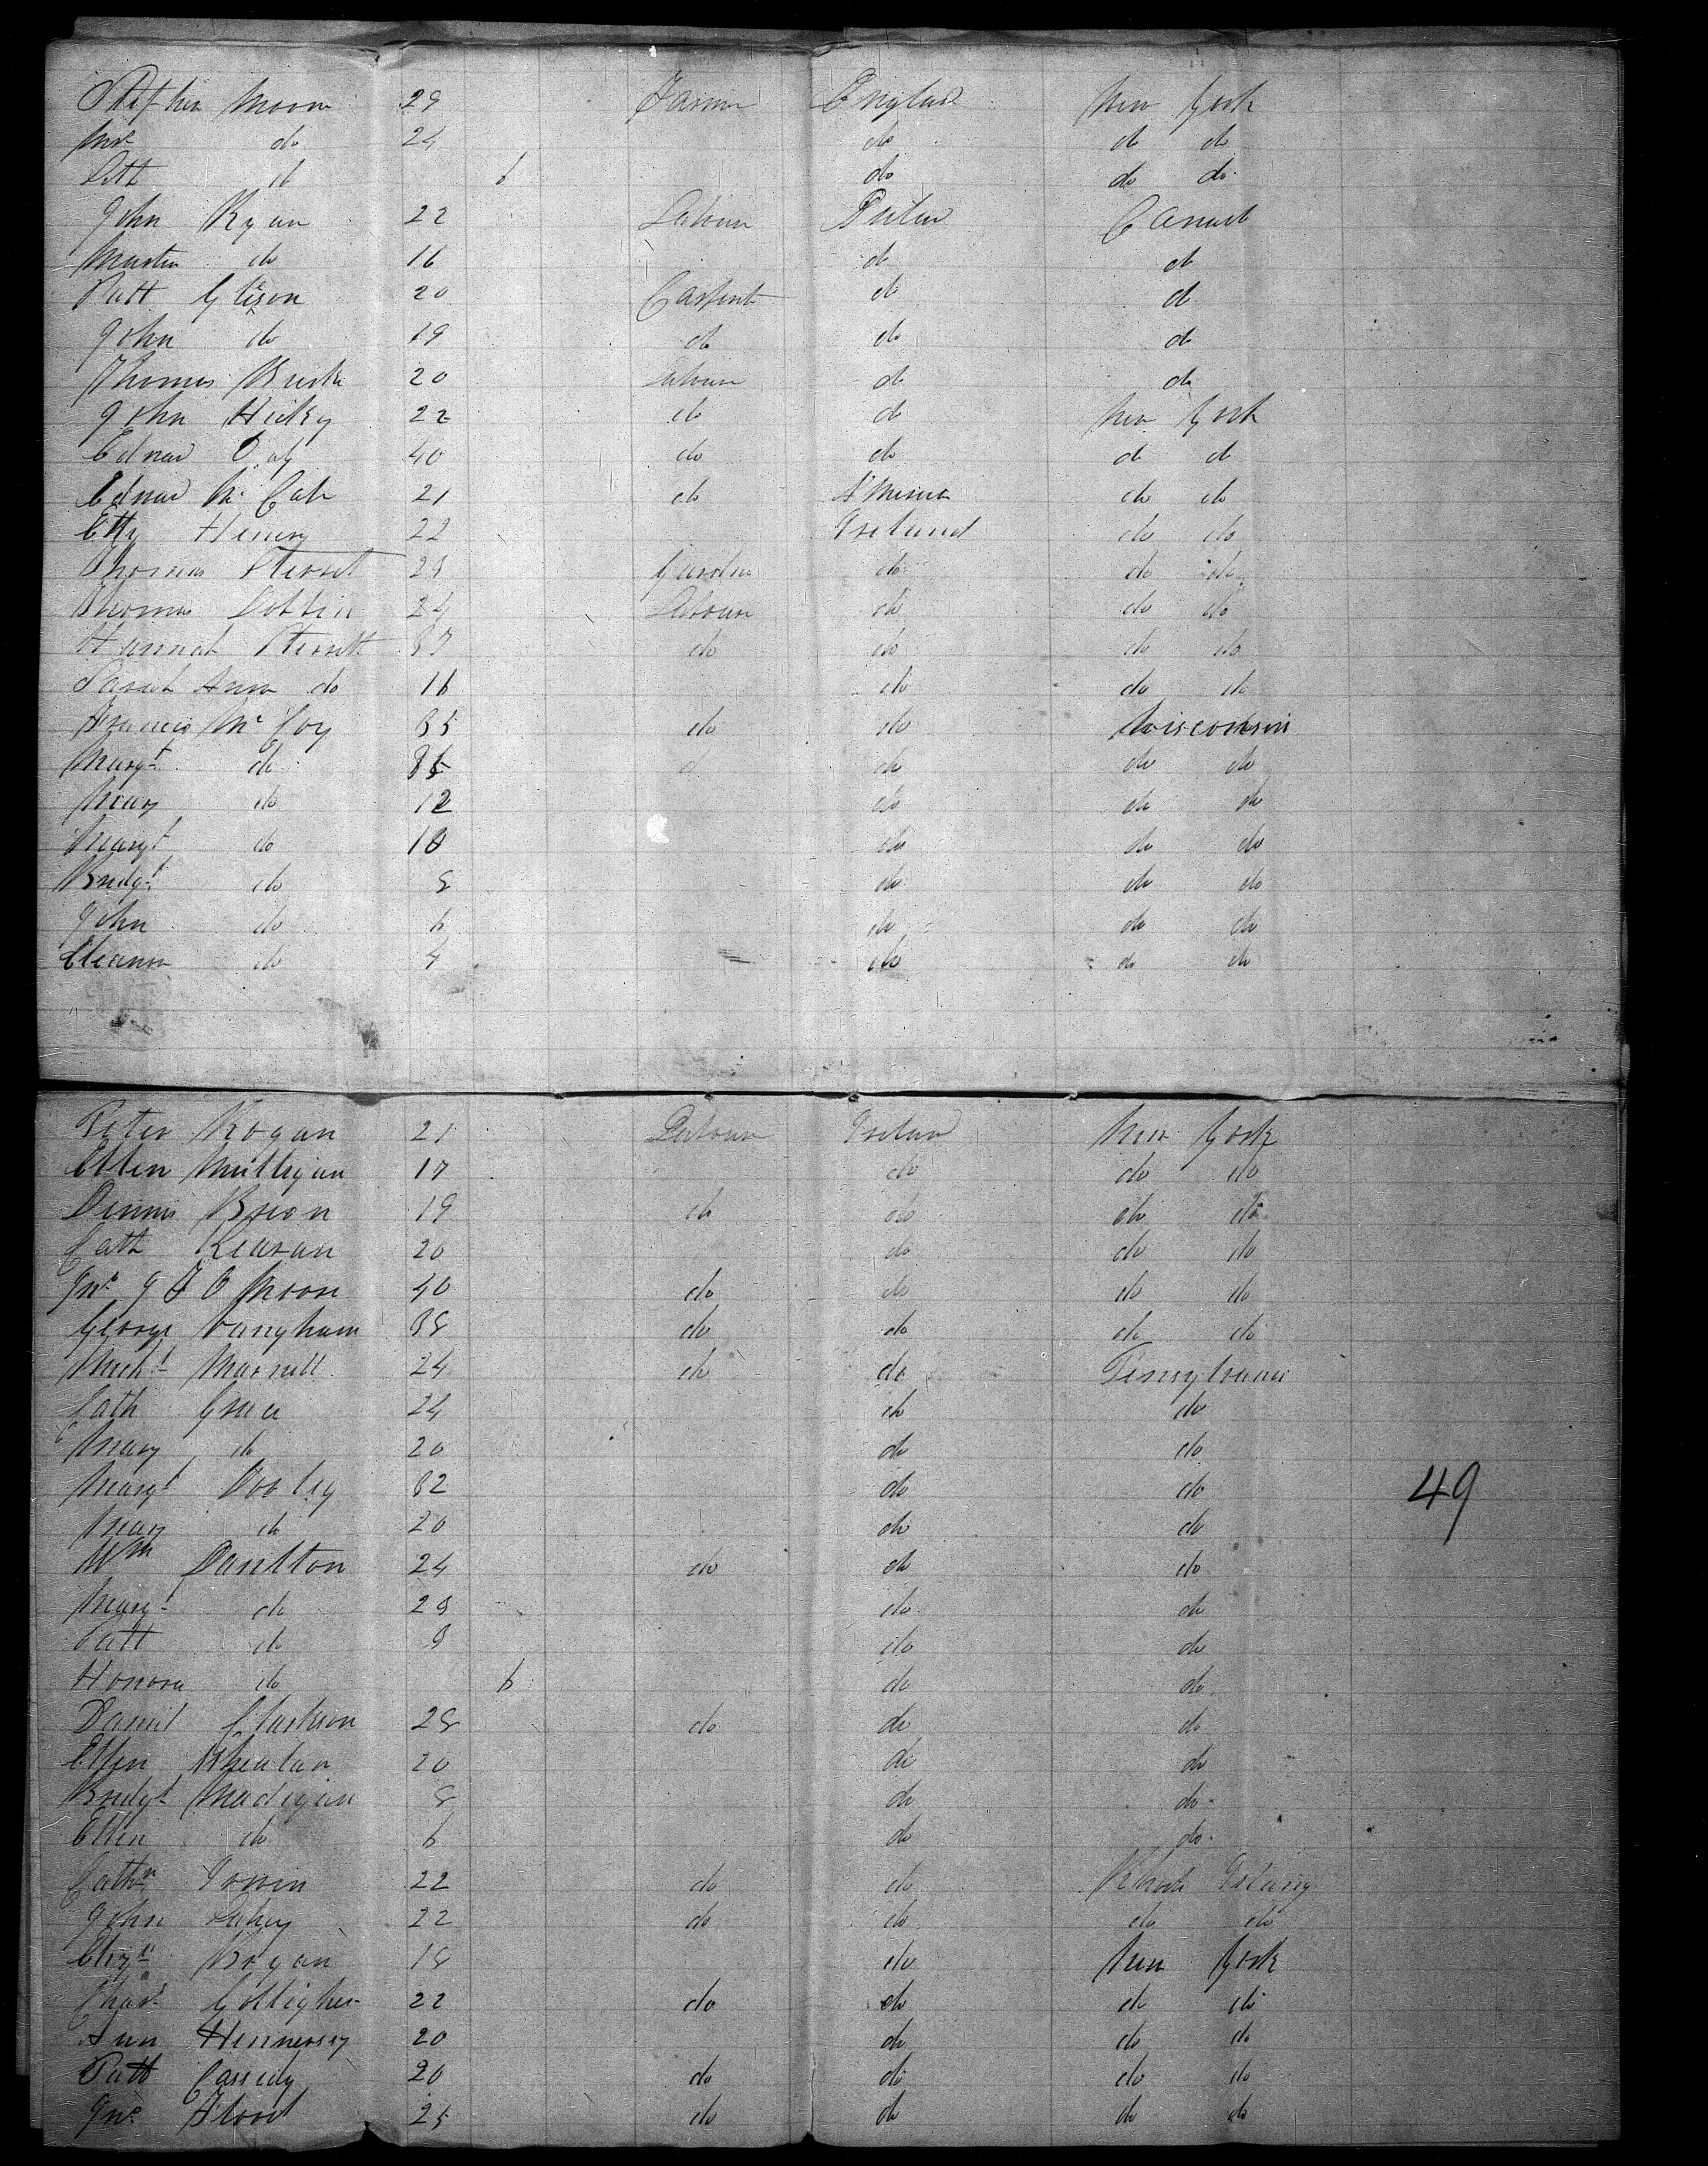 Stephen Moore 29 Farmer England New York
Mrs do 24 do do do
do 6 do do do
John Ryan 22 Labour Canada
Martin do 16 do do
Patt Gleson 20 Carpent do do
John do 19 do do do
Thomas Burke 20 Labour do do
John Hicky 22 do do New York
Edwar Daly 40 do do do do
Edwar Mc Cabe 21 do America do do
Henery 22 Ireland do do
Thomas Sterret 28 do do do
Thomas Dobbin 24 Labour do do do
Hannah Sterrett 37 do do do do
Sarah Ann do 16 do do do
Francis Mc Coy 35 do do Wisconsin
Margt do 35 do do do
Mary do 12 do do do
Margt do 10 do do do
Bridgt do 8 do do do
John do 6 do do do
Eleanor do 4 do do do
Peter Hogan 21 Labour Irelan New York
Ellen Mulligan 17 do do do
Dennis Breon 19 do do do do
Cath Kearan 20 do do do
Jno Moore 40 do do do do
George Vangham 38 do do do do
Michl Marnell 24 do do Pensylvania
Cath Grace 24 do do
Mary do 20 do do
Margt Dooley 32 do do
49
Mary do 20 do do
Wm Danelton 24 do do do
Margt do 28 do do
Patt do 9 do do
Honora do 6 do do
Daniel Clarkson 28 do do do
Ellen Whealan 20 do do
Bridgt Madigan 8 do do
Ellen do 6 do do
Cathn 22 do do Rhode Island
John Lahey 22 do do do do
Hogan 18 do New York
Chas Golligher 22 do do do do
Ann Hennessy 20 do do do
Patt Cassidy 20 do do do do
Jno Flood 25 do do do do